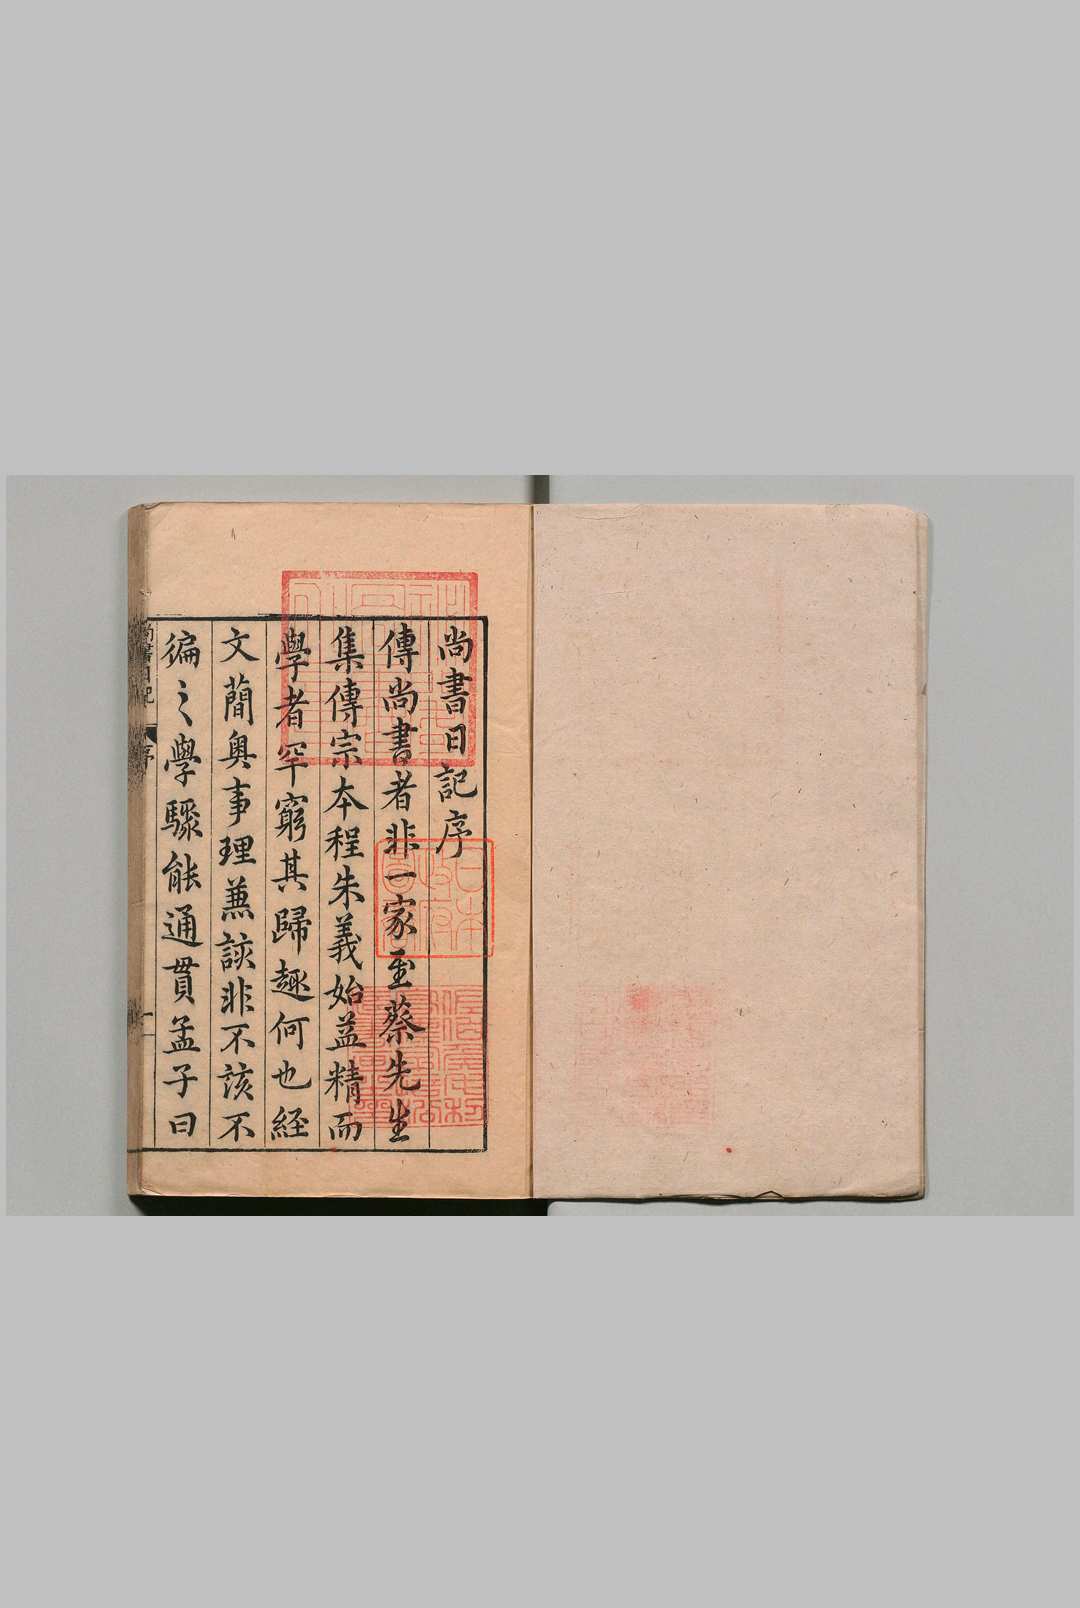 尚書日記序
傳尚書者非一家至蔡先生
集傳宗本程朱義始益精而
學者罕窮其歸趣何也経
文簡奥事理兼該非不該不
徧之學驟能通貫孟子曰
尚書日記
序
一
日本